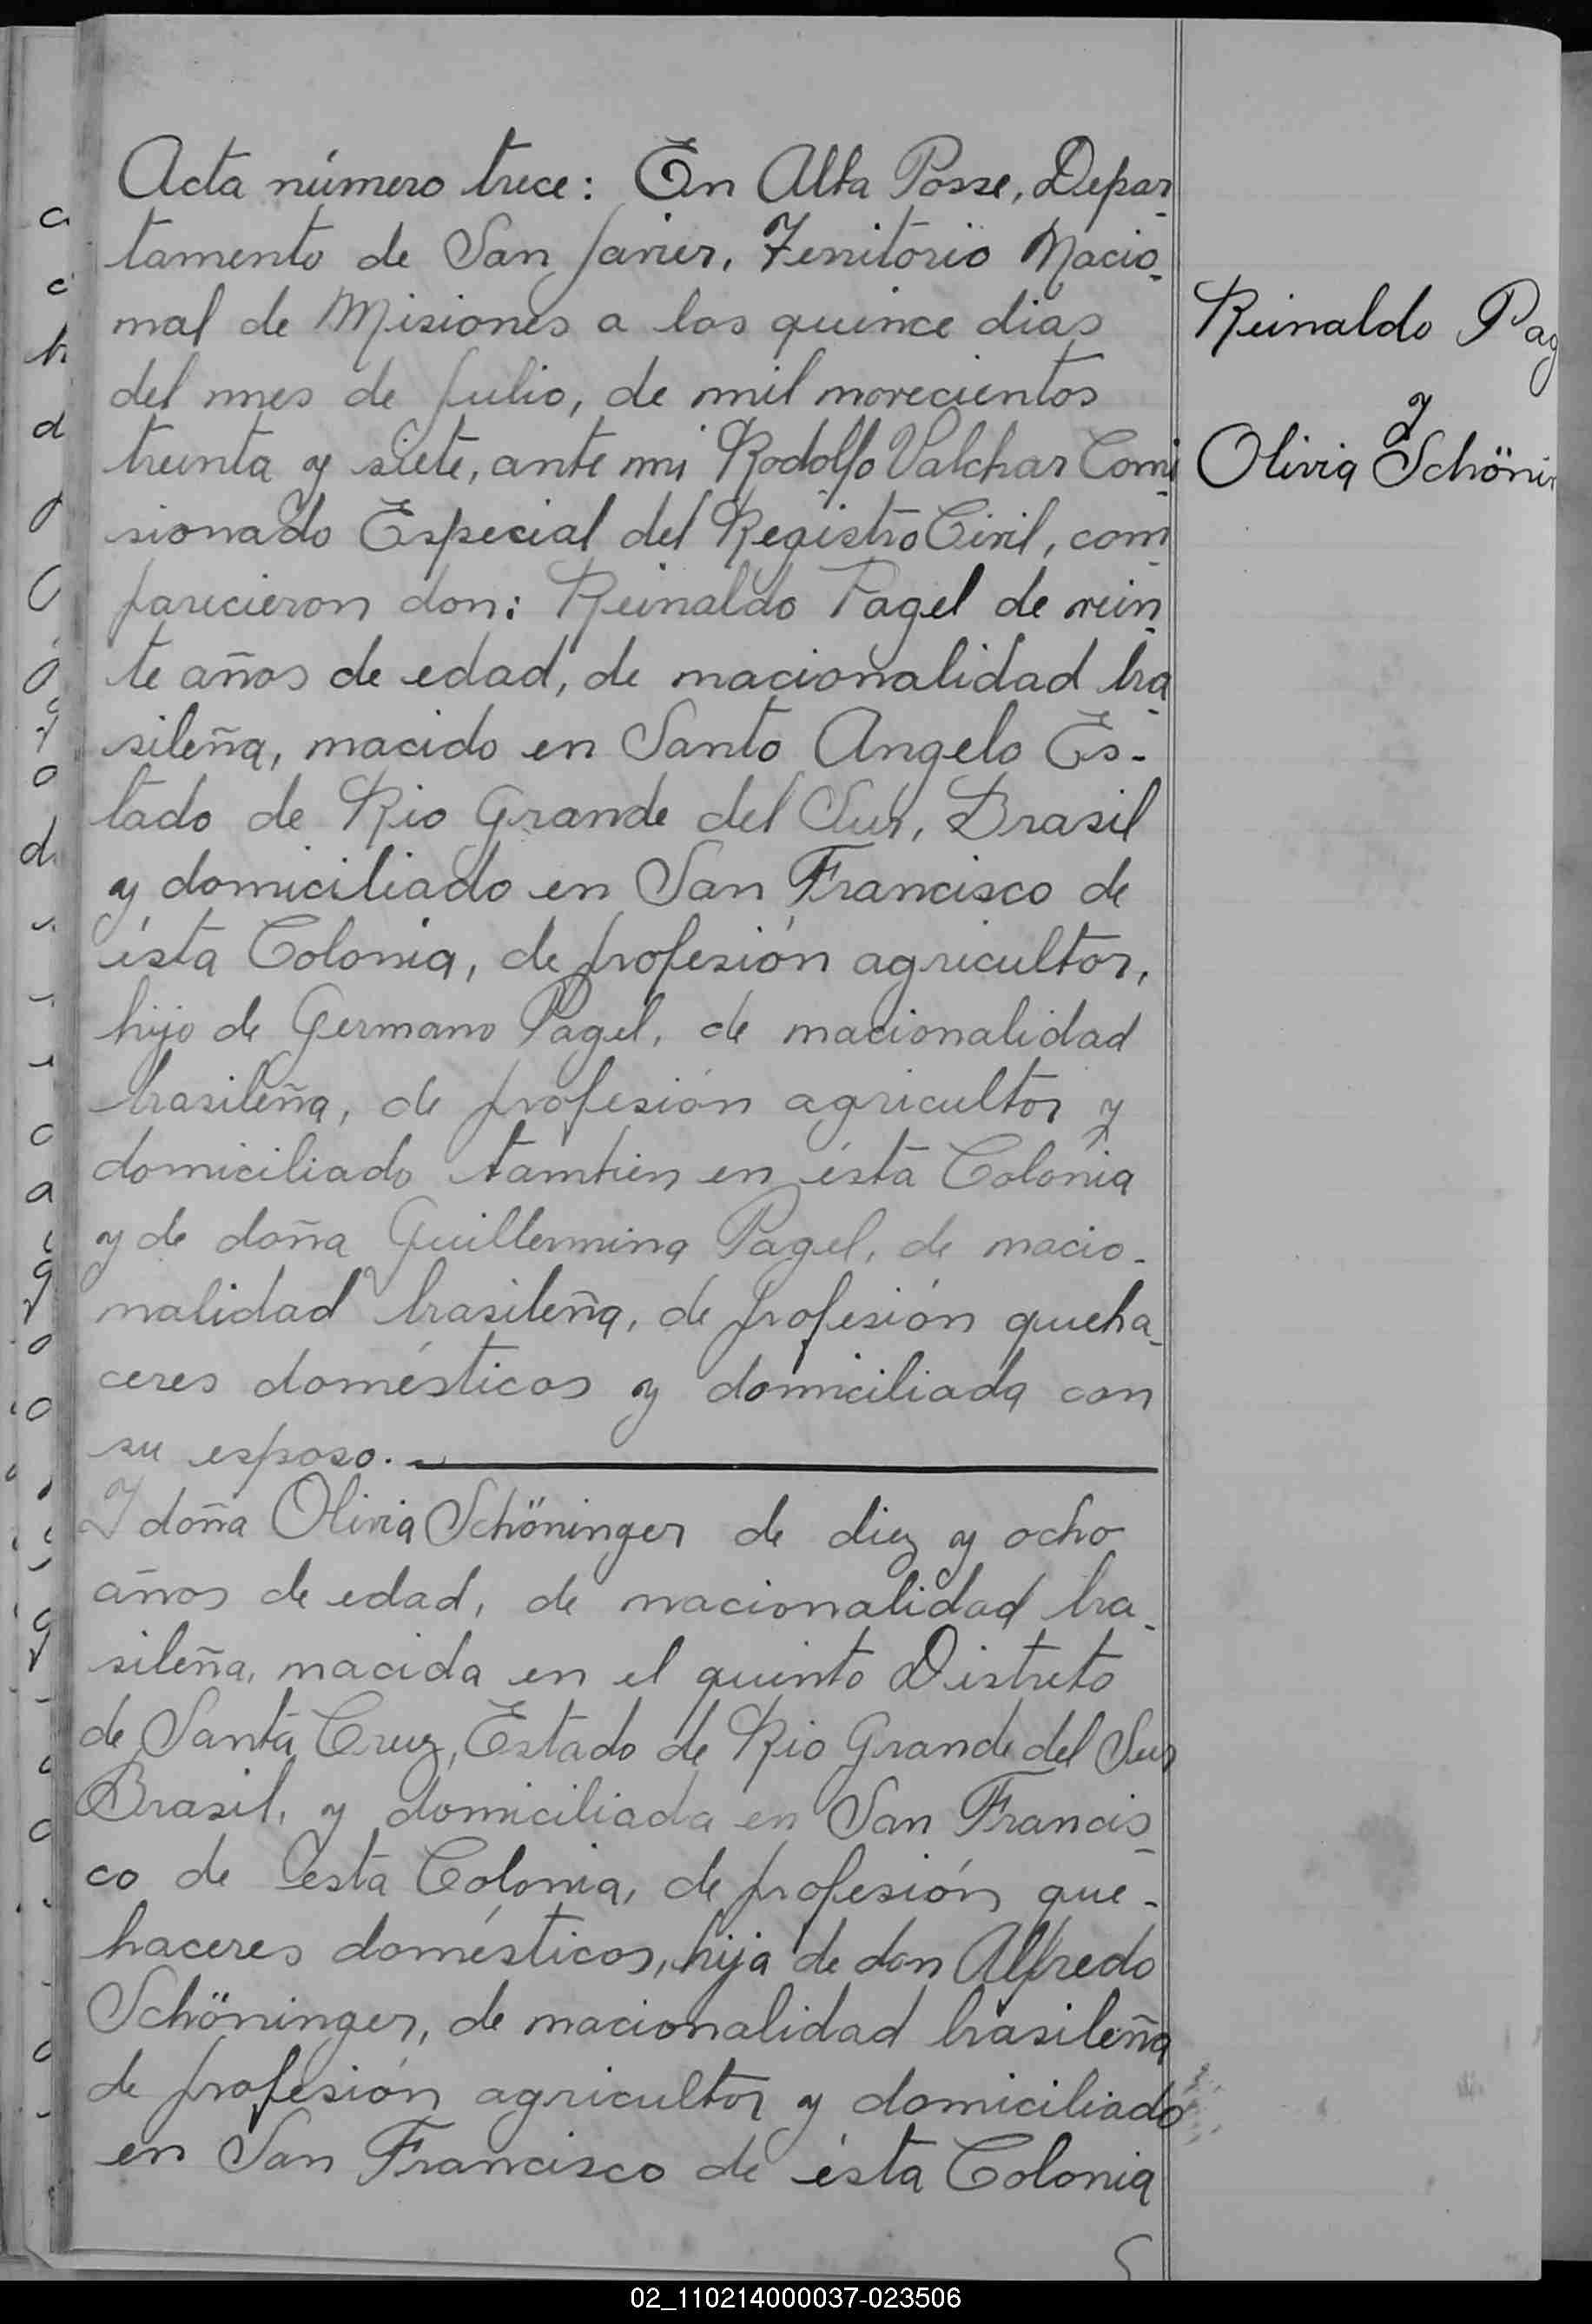 Acta número trece: En Alba Posse, Depar-
tamento de San Javier, Territorio Nacio-
nal de Misiones a los quince dias
del mes de Julio, de mil novecientos
treinta y siete, ante mi Rodolfo Valchar Comi-
sionado Especial del Registro Civil, com-
parecieron don: Reinaldo Pagel de vein-
te años de edad, de nacionalidad bra-
sileña, nacido en Santo Angelo Es-
tado de Rio Grande del Sur, Brasil
y domiciliado en San Francisco de
ésta Colonia, de profesión agricultor,
hijo de Germano Pagel, de nacionalidad
brasileña, de profesión agricultor y
domiciliado tambien en ésta Colonia
y de doña Guillermina Pagel, de nacio-
nalidad brasileña, de profesión queha-
ceres domésticos y domiciliada con
su esposo.-
Y doña Olivia Schöninger de diez y ocho
años de edad, de nacionalidad bra-
sileña, nacida en el quinto Distreto
de Santa Cruz, Estado de Rio Grande del Sur
Brasil, y domiciliada en San Francis-
co de esta Colonia, de profesión que-
haceres domésticos, hija de don Alfredo
Schöninger, de nacionalidad brasileña
de profesión agricultor y domiciliado
en San Francisco de ésta Colonia
Reinaldo Pag
y
Olivia Schönin
02_110214000037-023506